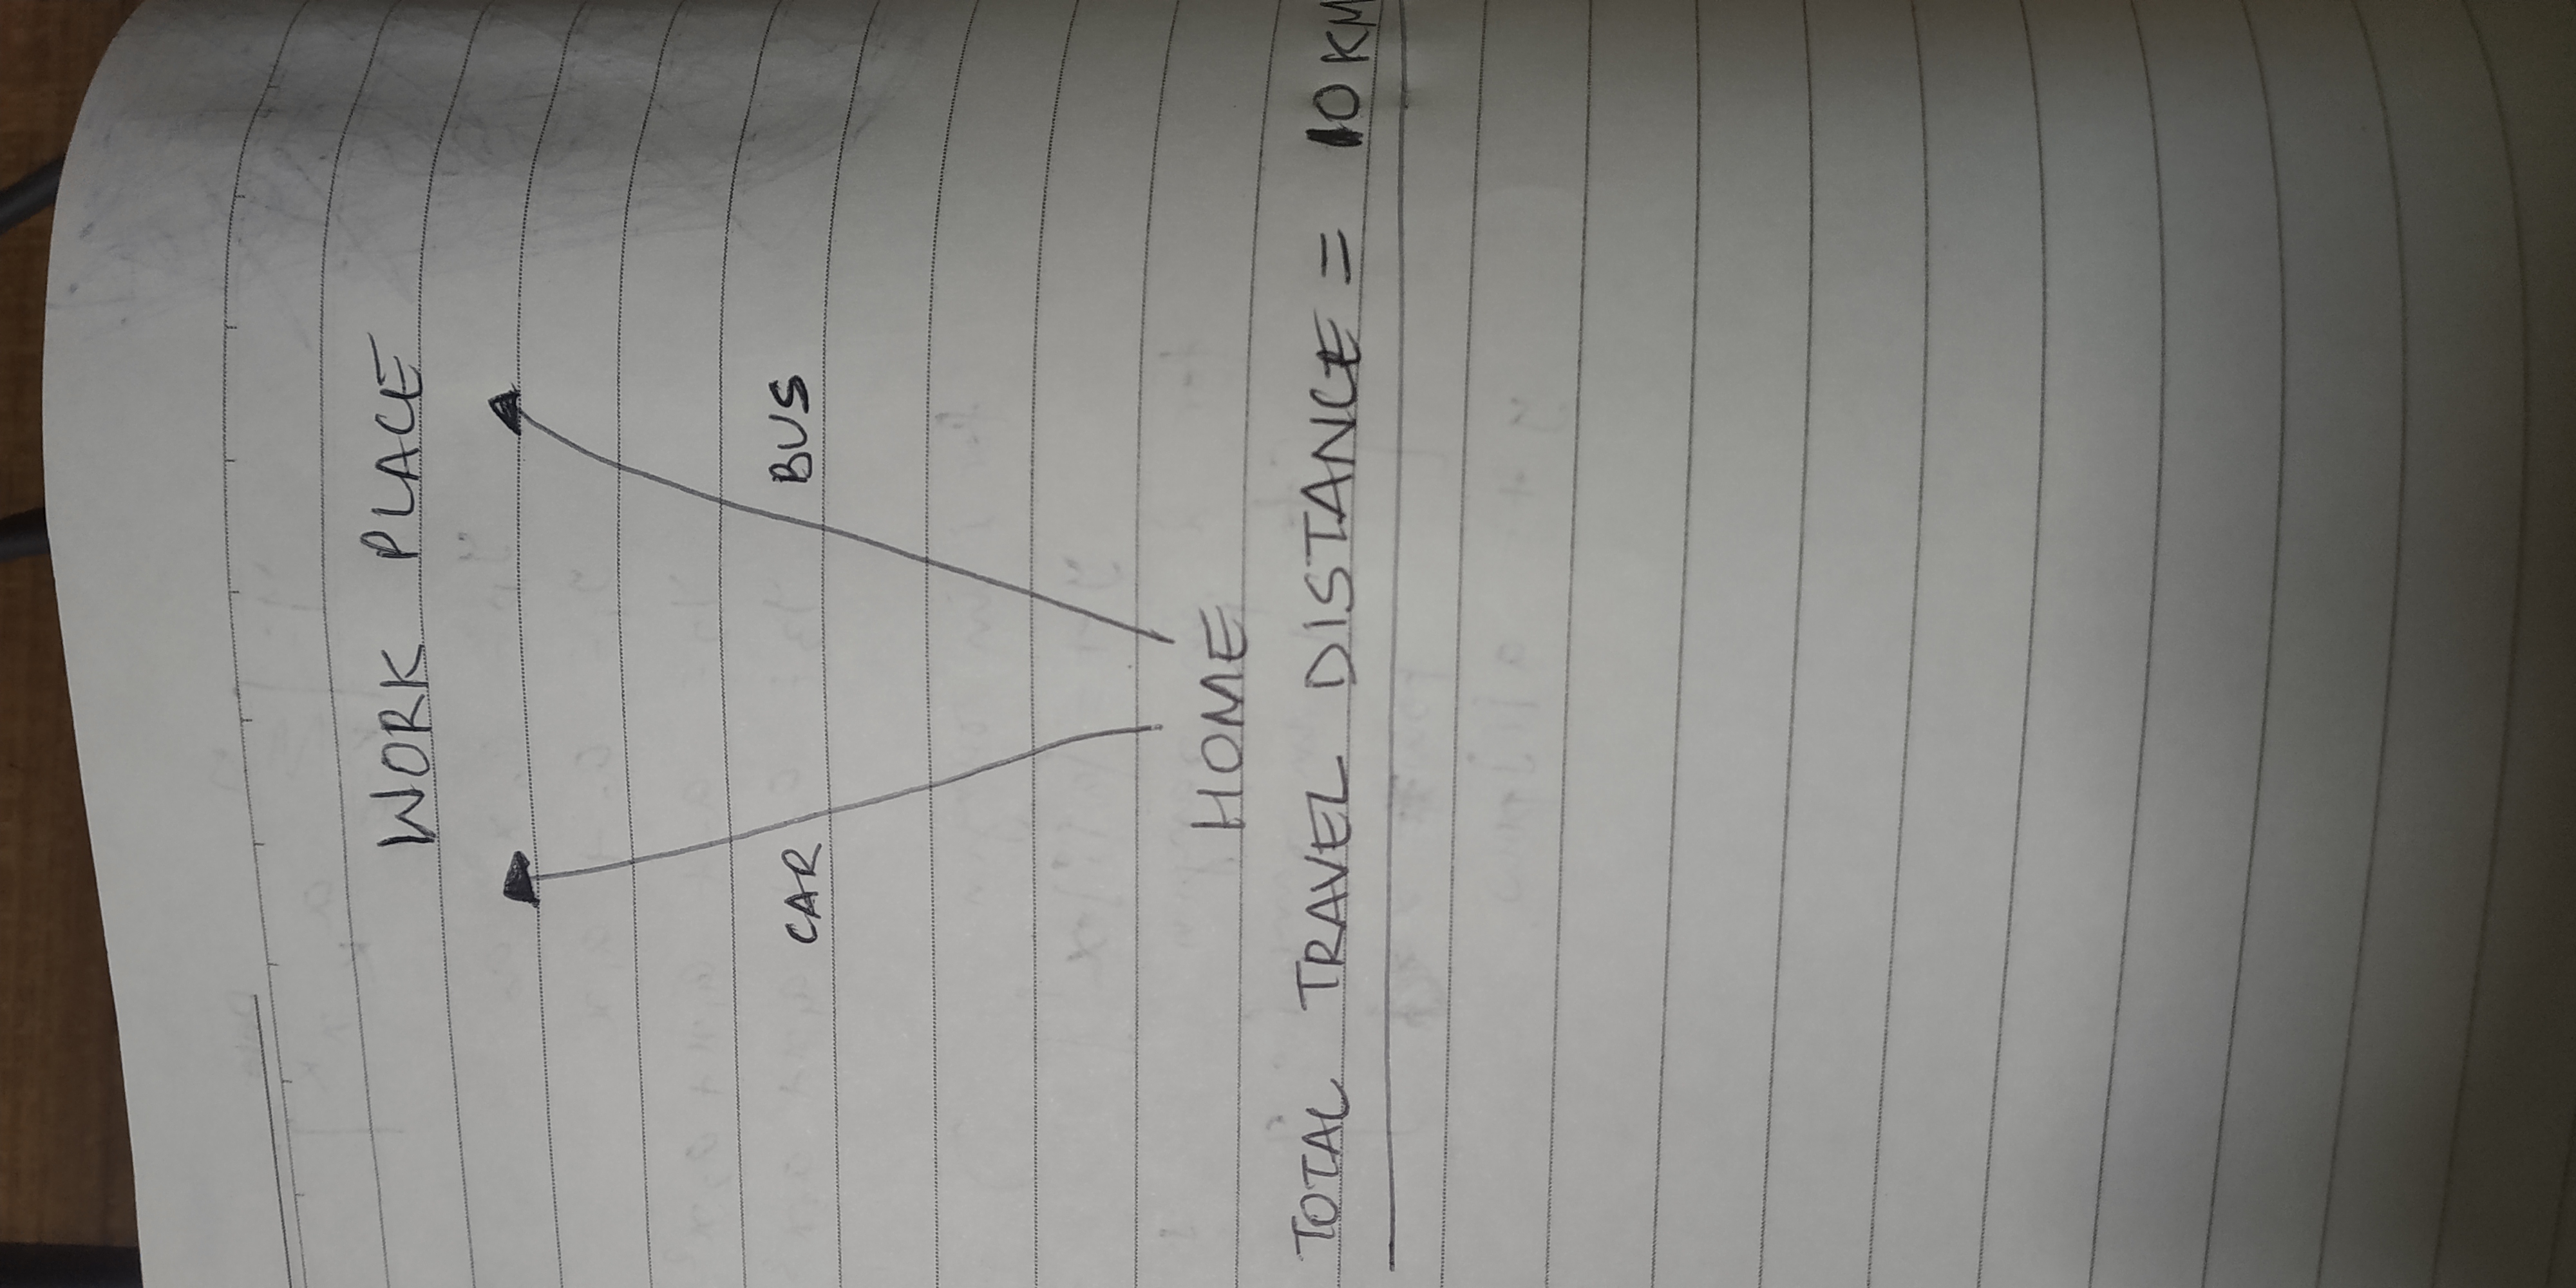 WORK PLACE
CAR
BUS
HOME
TOTAL TRAVEL DISTANCE = 10 KM